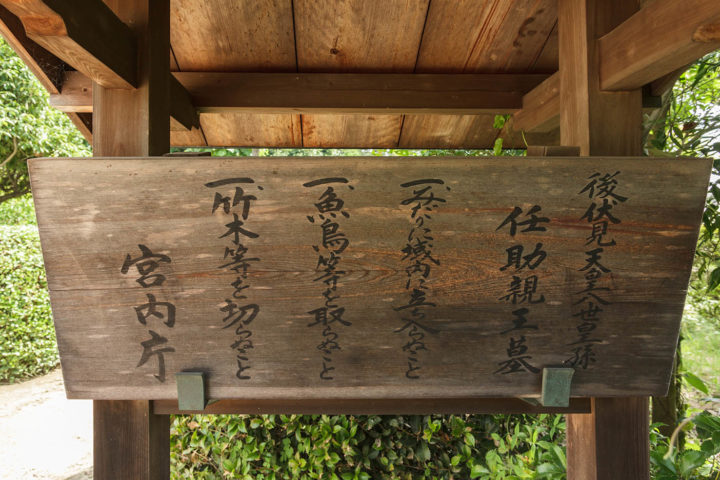 後伏見天皇八世皇孫
任助親王墓
一みだりに域内に立ち入らぬこと
一魚鳥等を取らぬこと
一竹木等を切らぬこと
宮内庁